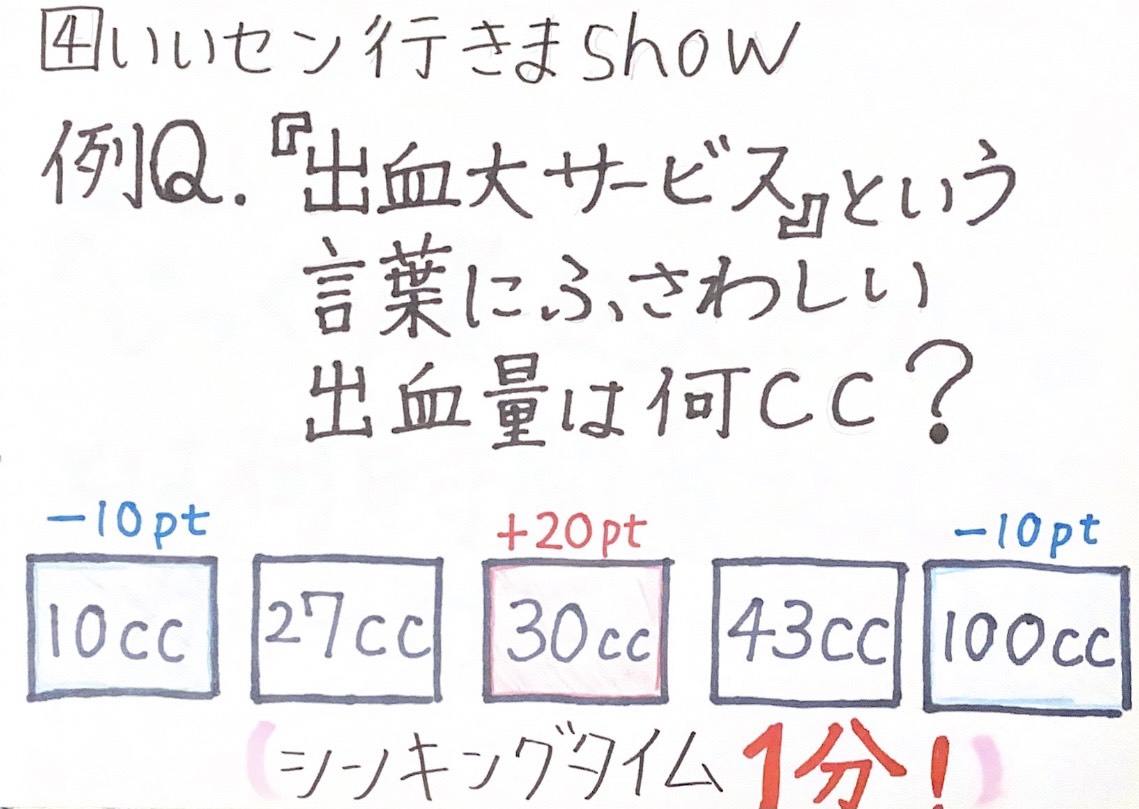 4 いいセン行きまshow
例Q.『出血大サービス』という
言葉にふさわしい
出血量は何CC?
-10pt +20pt -10pt
10cc 27cc 30cc 43cc 100cc
(シンキングタイム 1分!)